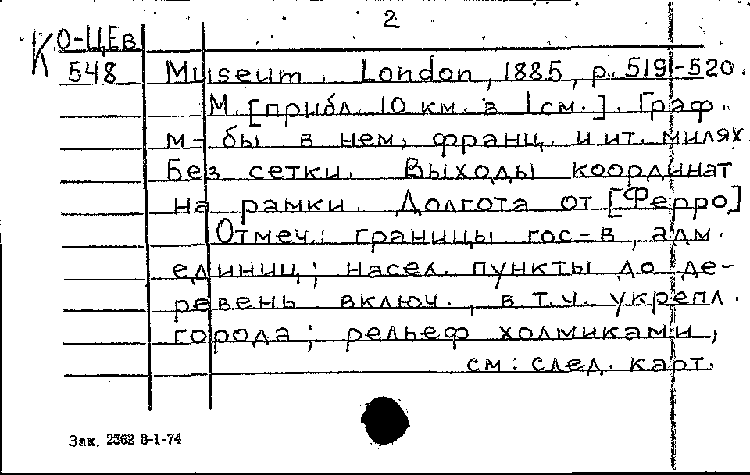 2
КО-ЦЕв
548 Museum. London, 1885, p. 519-520.
М. [прибл. 10 км. в 1 см.]. Граф.
м-бы в нем., франц. и ит. милях
Без сетки. Выходы координат
на рамки. Долгота от [Ферро]
Отмеч.: границы гос-в, адм.
единиц; насел. пункты до де-
ревень включ., в т.ч. укрепл.
города; рельеф холмиками,
см: след. карт.
Зак. 2362 8-1-74